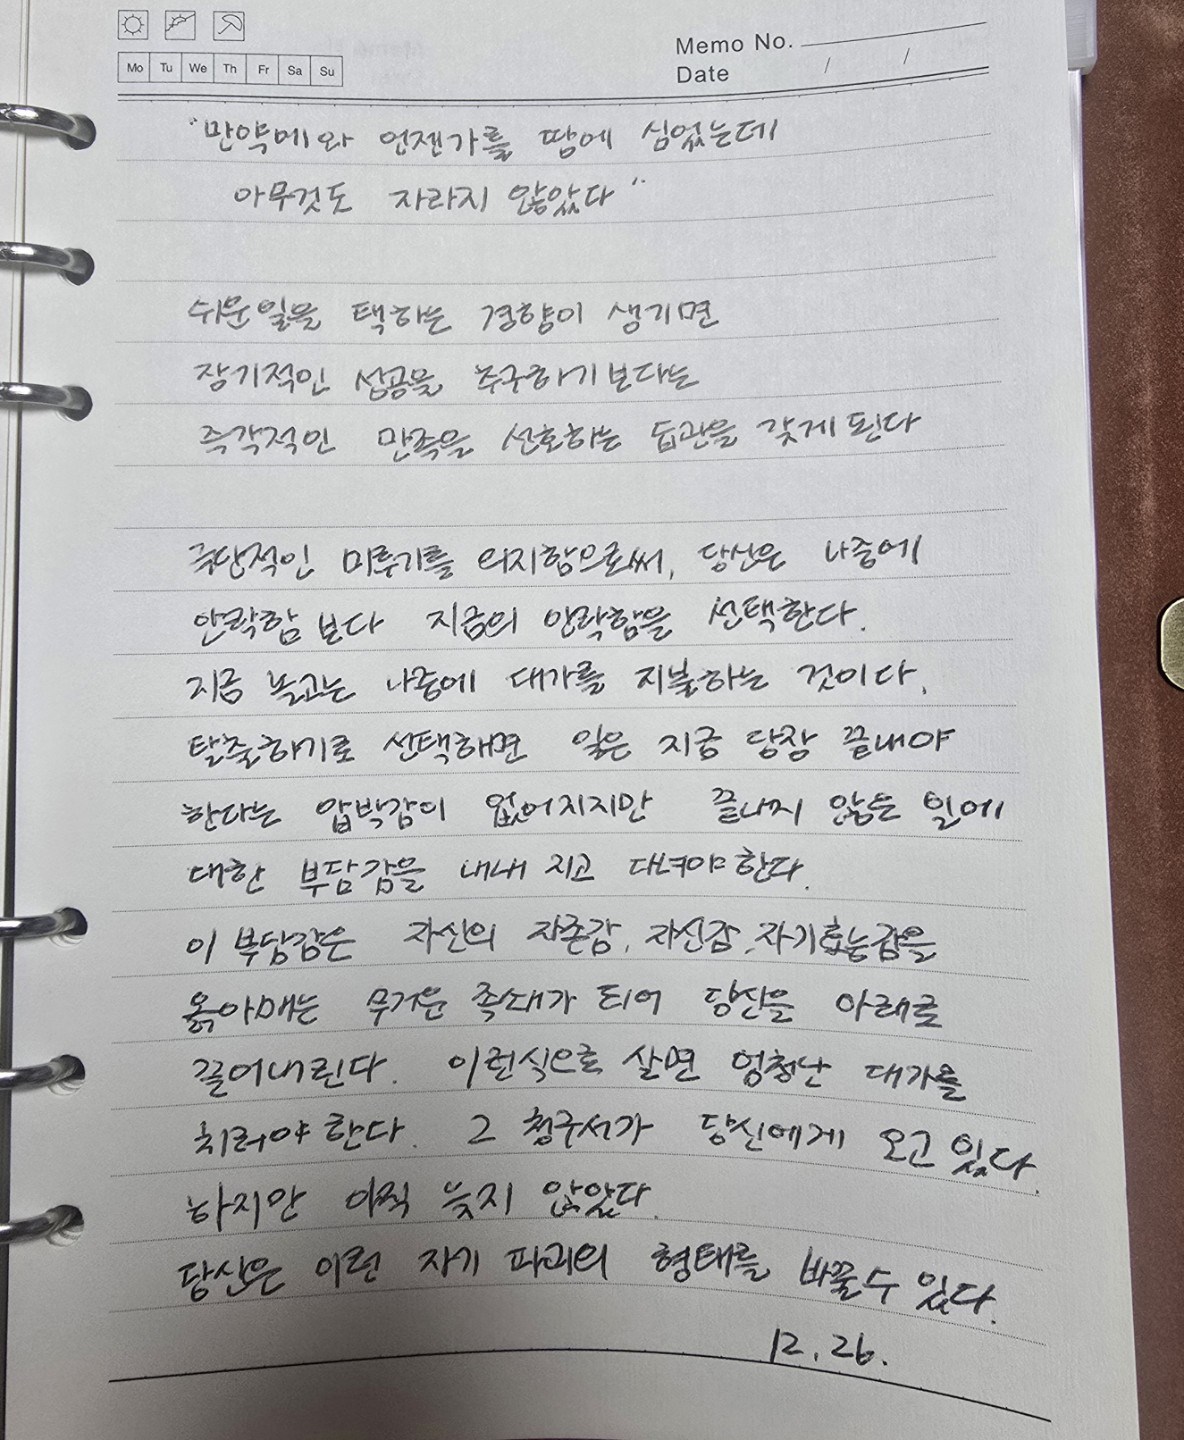 Memo No.
Mo Tu We Th Fr Sa Su
Date / /
"만약에와 언젠가를 땅에 심었는데
아무것도 자라지 않았다"
쉬운일을 택하는 경향이 생기면
장기적인 성공을 추구하기 보다는
즉각적인 만족을 선호하는 습관을 갖게 된다
극단적인 미루기를 의지함으로써, 당신은 나중에
안락함 보다 지금의 안락함을 선택한다.
지금 놀고는 나중에 대가를 지불하는 것이다.
탈출하기로 선택해면 일은 지금 당장 끝내야
한다는 압박감이 없어지지만 끝나지 않은 일에
대한 부담감을 내내 지고 다녀야 한다.
이 부담감은 자신의 자존감, 자신감, 자기효능감을
옭아매는 무거운 족쇄가 되어 당신을 아래로
끌어내린다. 이런식으로 살면 엄청난 대가를
치뤄야 한다. 그 청구서가 당신에게 오고 있다.
하지만 아직 늦지 않았다.
당신은 이런 자기 파괴의 형태를 바꿀수 있다.
12. 26.